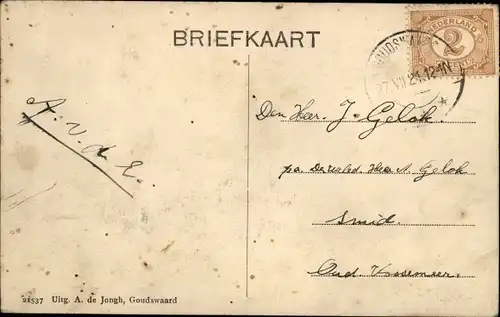 BRIEFKAART
NEDERLAND
2
27 VII 21. 12-1N
A. v. d. E.
Den Heer. J. Gelok
pa. De Weled. Heer A. Gelok
Smid.
Oud. Vossemeer.
21537 Uitg. A. de Jongh, Goudswaard